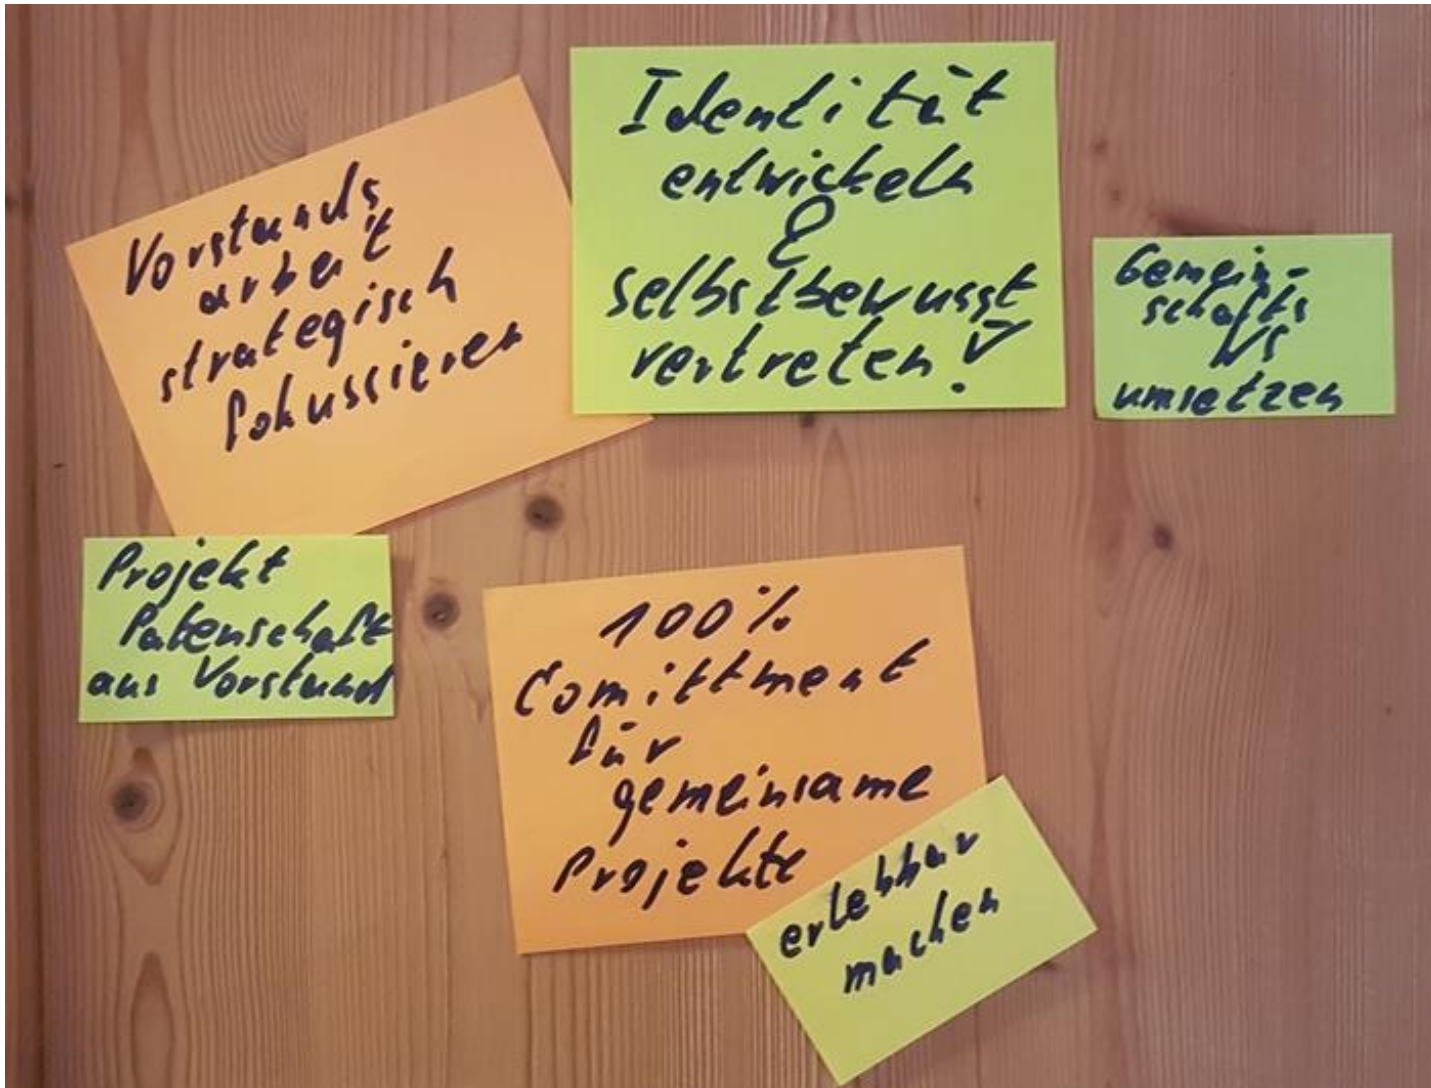 Vorstands
arbeit
strategisch
fokussieren
Identität
entwickeln
&
selbstbewusst
vertreten!
Gemein-
schafts
WS
umsetzen
Projekt
Patenschaft
aus Vorstand
100%
Comittment
für
gemeinsame
Projekte
erlebbar
machen